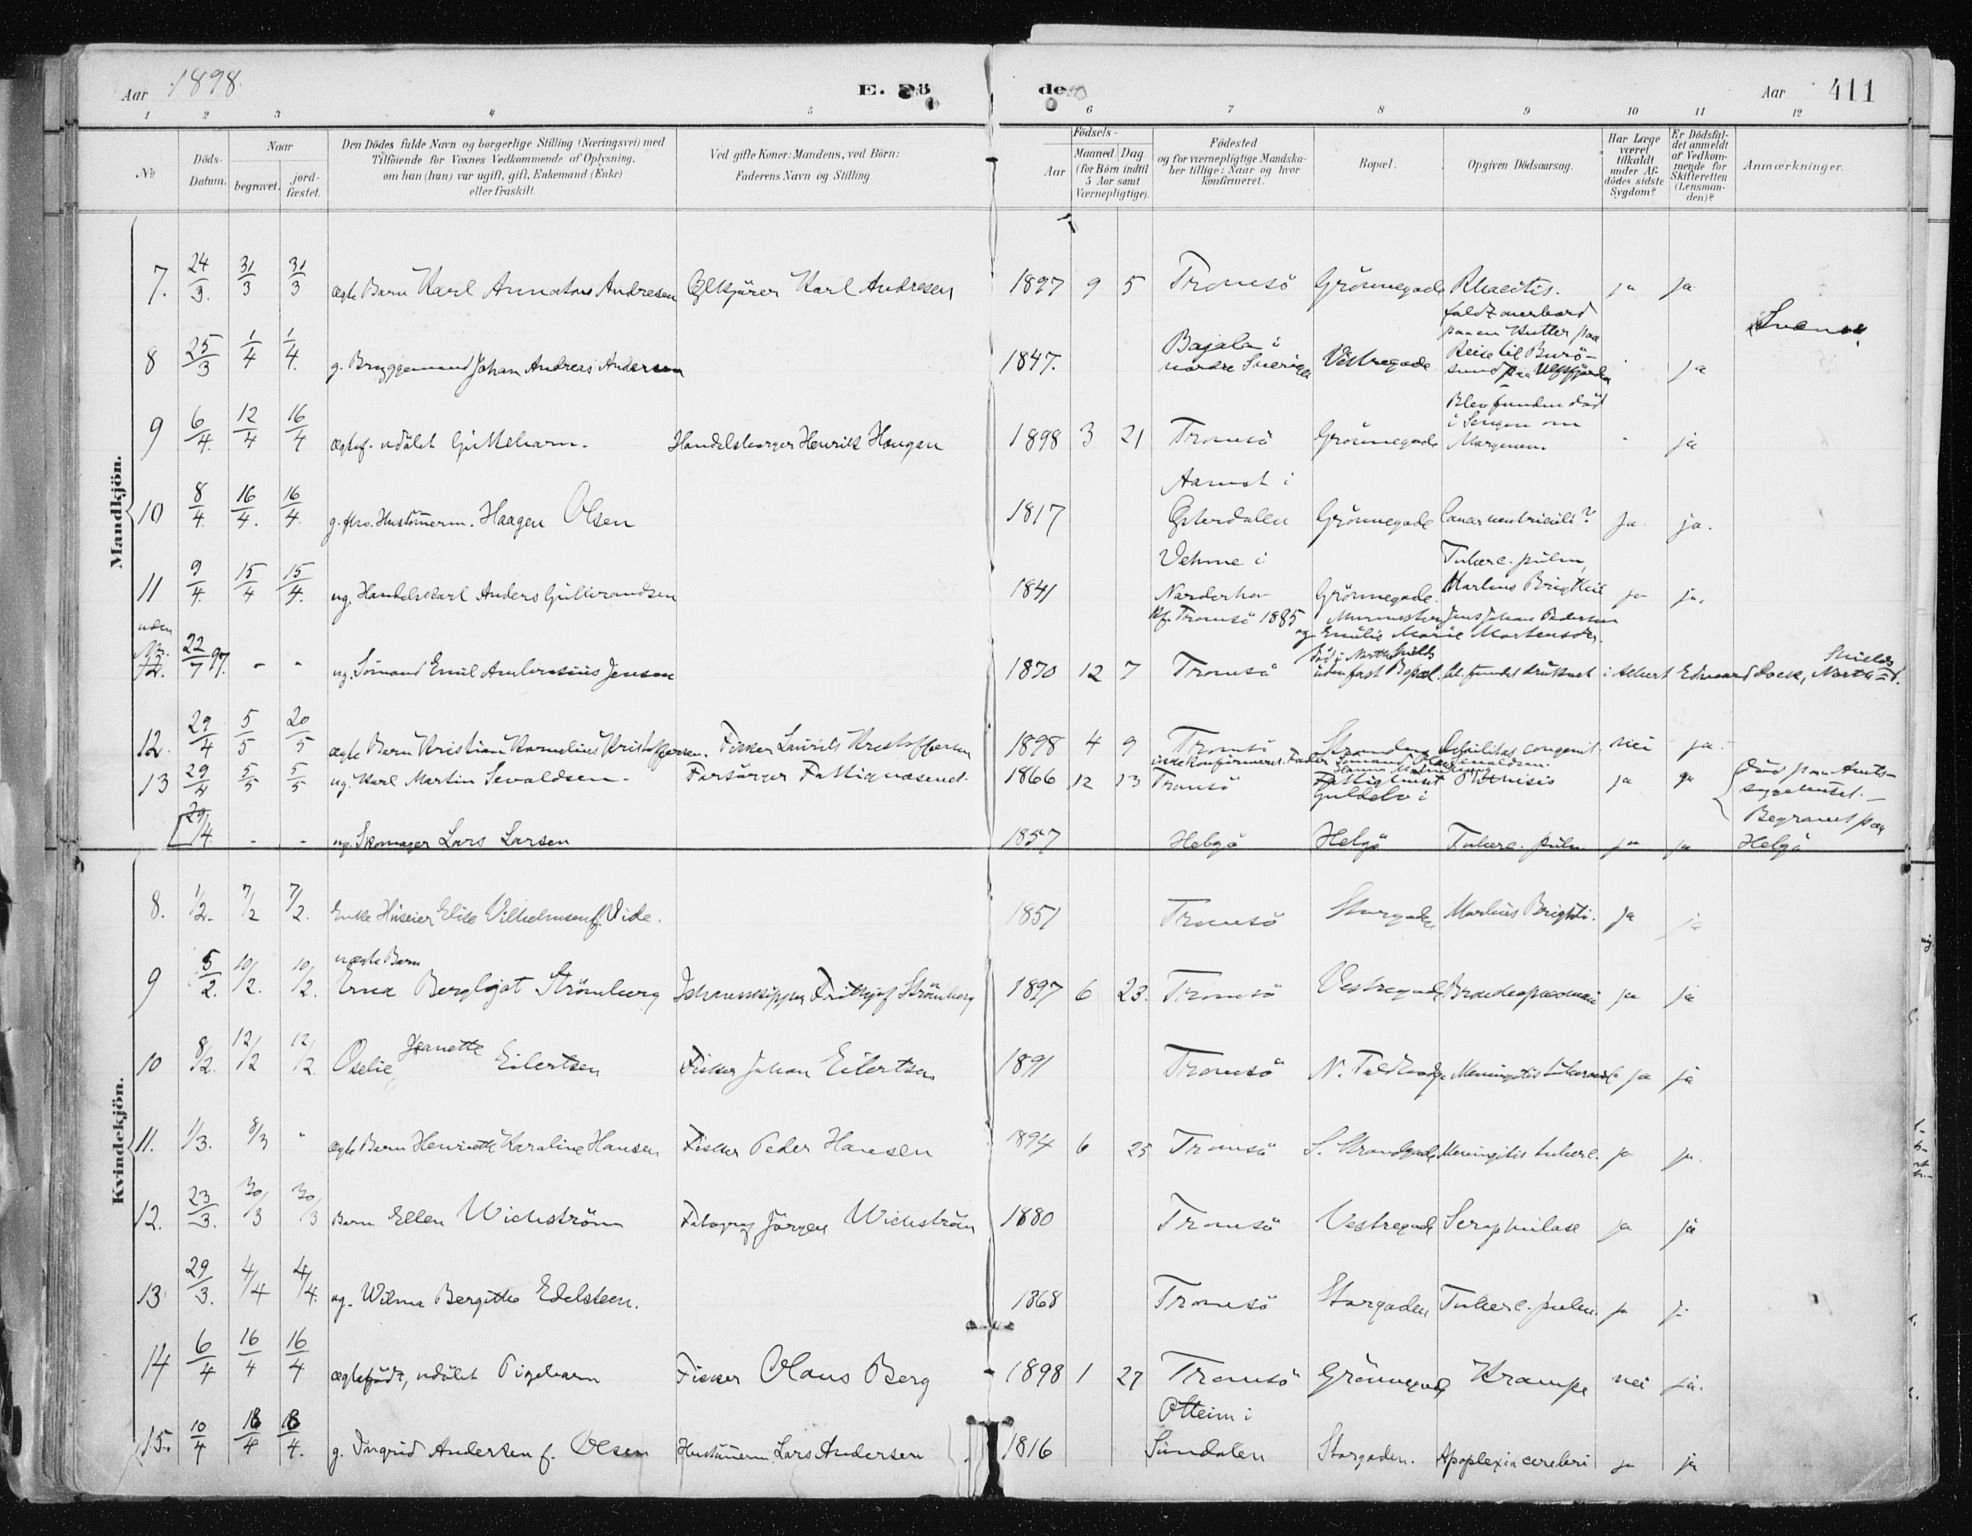 Aar 1898. E. Dö de. Aar 411
1 2 3 4 5 6 7 8 9 10 11 12
No
Döds-Datum.
Naar begravet. jordfæstet.
Den Dödes fulde Navn og borgerlige Stilling (Næringsvei) med Tilföiende for Voxnes Vedkommende af Oplysning, om han (hun) var ugift, gift, Enkemand (Enke) eller fraskilt.
Ved gifte Koner: Mandens, ved Börn: Faderens Navn og Stilling
Födsels- Aar Maaned Dag (for Börn indtil 5 Aar samt Værnepligtige).
Födested og for værnepligtige Mandskaber tillige: Naar og hvor konfirmeret.
Bopæl.
Opgiven Dödsaarsag.
Har Læge været tilkaldt under Afdödes sidste Sygdom?
Er Dödsfaldet anmeldt af Vedkommende for Skifteretten (Lensmanden)?
Anmærkninger.
Mandkjön.
7. 24/3. 31/3 31/3 ægte Barn Karl Annatons Andresen Ølkjører Karl Andresen 1897 9 5 Tromsö Grönnegade Rhacitis. ja ja
8 25/3 1/4 1/4. g. Bryggemand Johan Andreas Andersen 1847. i nordre Sverige Vestregade faldt overbord paa en Kutter paa Reise til sund paa Ulfsfjorden ja Svensk
9 6/4. 12/4 16/4 ægtef. udöbt Guttebarn. Handelsborger Henrik Haugen 1898 3 21 Tromsö Grönnegade Blev funden död i Sengen om Morgenen. - ja
10 8/4. 16/4. 16/4. g. Hustömerm. Haagen Olsen 1817 Aamot i Østerdalen Grönnegade Cancer ventriculi? ja ja.
11 9/4. 15/4 15/4. ug. Handelskarl Anders Gulbrandsen 1841 i Norderhov Grönnegade. Tuberc. pulm, Morbus Brigthii ja ja.
uden No. 12. 22/7 97. - - ug. Sömand Emil Ambrosius Jensen 1870 12 7 Kf. Tromsö 1885 Tromsö Murmester Jens Johan Pedersen og Emilie Marie Mortensdr. Död i North Shields uden fast Bopæl. bl. fundet druknet i Albert Edward Dock, North Shields.
12. 29/4 5/5 20/5 ægte Barn Kristian Kornelius Kristoffersen. Fisker Laurits Kristoffersen 1898 4 9 Tromsö Debilitas congenit. nei ja.
13 29/4 5/5 5/5 ug. Karl Martin Sevaldsen. Forsörges Fattigvæsenet. 1866 12 13 ikke konfirmeret. Tromsö Fattighuset Phthisis ja ja Död paa Amtssygehuset. -
29/4. - - ug. Skomager Lars Larsen 1857 Helgö Helgö Tuberc. pulm ja ja Begravet paa Helgö
Kvindekjön.
8. 1/2. 7/2 7/2. Enke Elise Vilhelmsen f. Vide. 1851 Tromsö Storgaden Morbus Brigthi. ja ja
9 5/2. 10/2. 10/2. uægte Barn Erna Bergljot Strömberg Ishavsskipper Frithjof Strömberg 1897 6 23. Tromsö Vestregade Bronchopneumoni ja ja
10 8/2. 12/2 12/2 Oselie Jeanette Eilertsen Fisker Johan Eilertsen 1891 Tromsö N. Meningitis tubercul. ja ja
11. 1/3. 8/3 - ægte Barn Henriette Karoline Hansen Fisker Peder Hansen 1894 6 25 Tromsö S. Strandgade Meningitis tuberc. ja ja.
12. 23/3. 30/3 30/3 Barn Ellen Wickström Fotograf Jörgen Wickström 1880 Tromsö Vestregade Scrophulose ja ja
13 29/3. 4/4 4/4. ug. Wilma Bergitte Edelsteen. 1868 Tromsö Storgaden Tuberc. pulm. ja ja
14 6/4 16/4 16/4 ægtefödt, udöbt Pigebarn Fisker Olaus Berg 1898 1 27 Tromsö Grönnegade Krampe nei ja.
15. 10/4 18/4 18/4. g. Ingrid Andersen f. Olsen Hustömerm. Lars Andersen 1816 Otteim i Sundalen Storgaden. Apoplexia cerebri ja ja